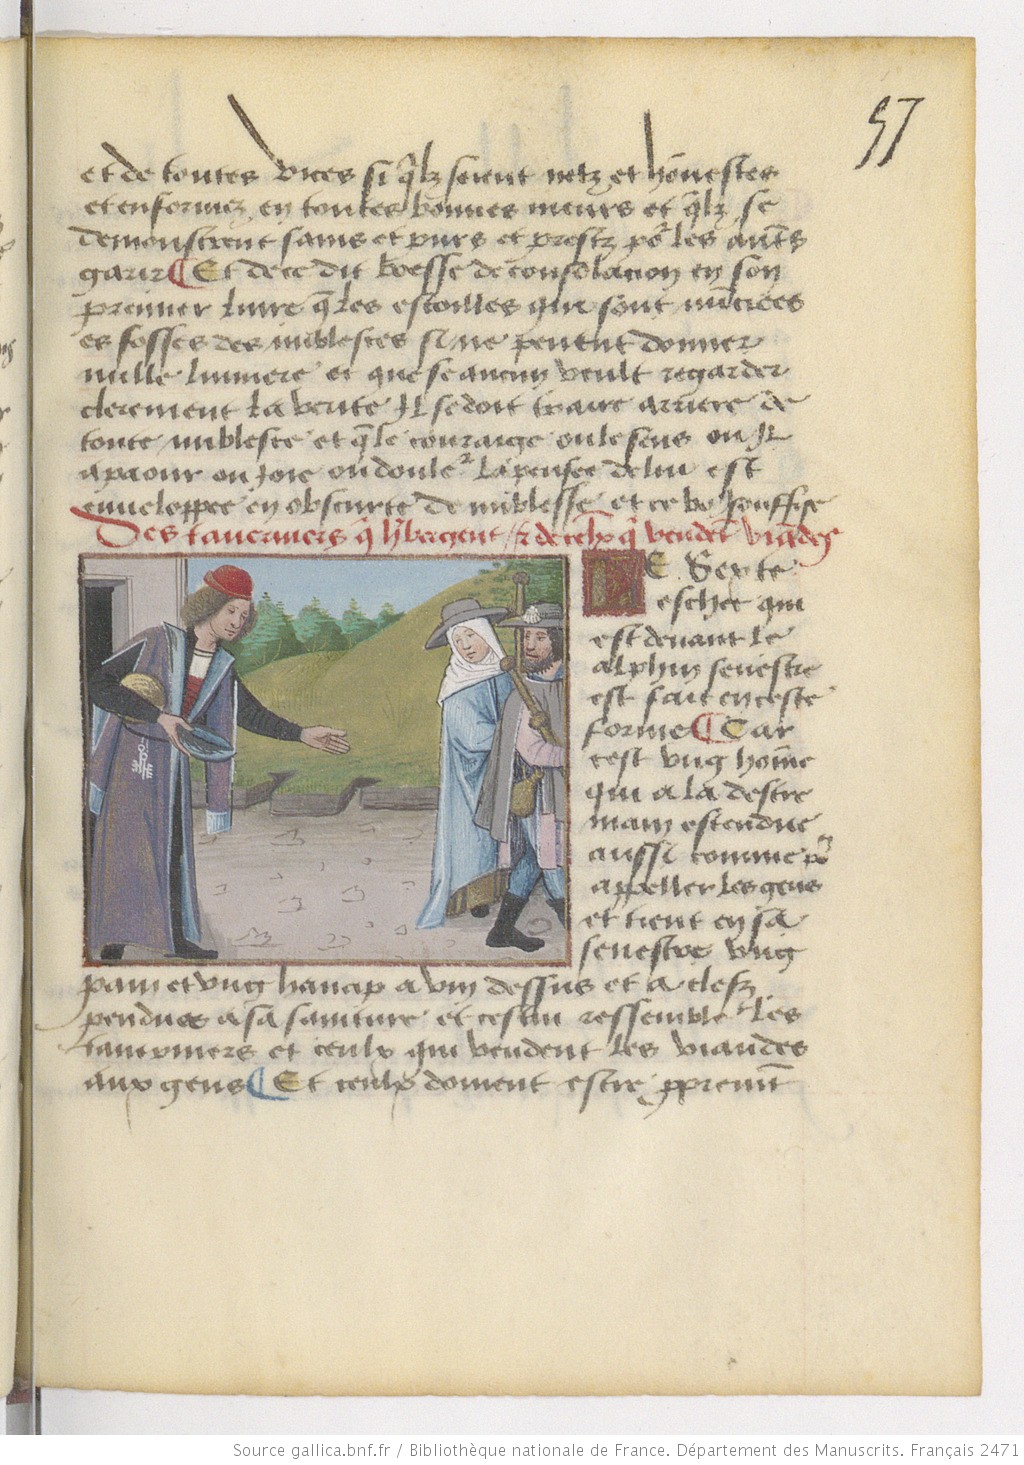 57
et de toutes vices si q̃lz soient netz et hõnestes
et enformez en toutes bonnes meurs et q̃lz se
demonstrent sains et purs et prestz põ les autr̃s
garir ¶ Et de ce dit boesse de consolacion en son
premier liure q̃ les estoilles qui sont
es fosses des niblesces si ne peuent donner
nulle lumiere et que se aucun veult regarder
clerement la verite Il se doit traire arriere de
toute niblesce et q̃ le couraige ou le sens ou Il
a paour ou Joie ou douleᷣ la pensee de lui est
enueloppee en obscurte de niblesse et ce vo9 souffise
Des tauerniers q̃ h̃bergent / et de ceulx q̃ vendẽt viãdes
LE Sexte
eschec qui
est deuant le
alphin senestre
est fait en ceste
forme ¶ Car
cest vng hom̃e
qui a la destre
main estendue
aussi comme põ
appeller les gens
et tient en sa
senestre vng
pain et vng hanap a vin dessus et a clefz
pendues a sa sainture et cestui ressemble les
tauerniers et ceulx qui vendent les viandes
aux gens ¶ Et ceulx doiuent estre
Source gallica.bnf.fr / Bibliothèque nationale de France. Département des Manuscrits. Français 2471